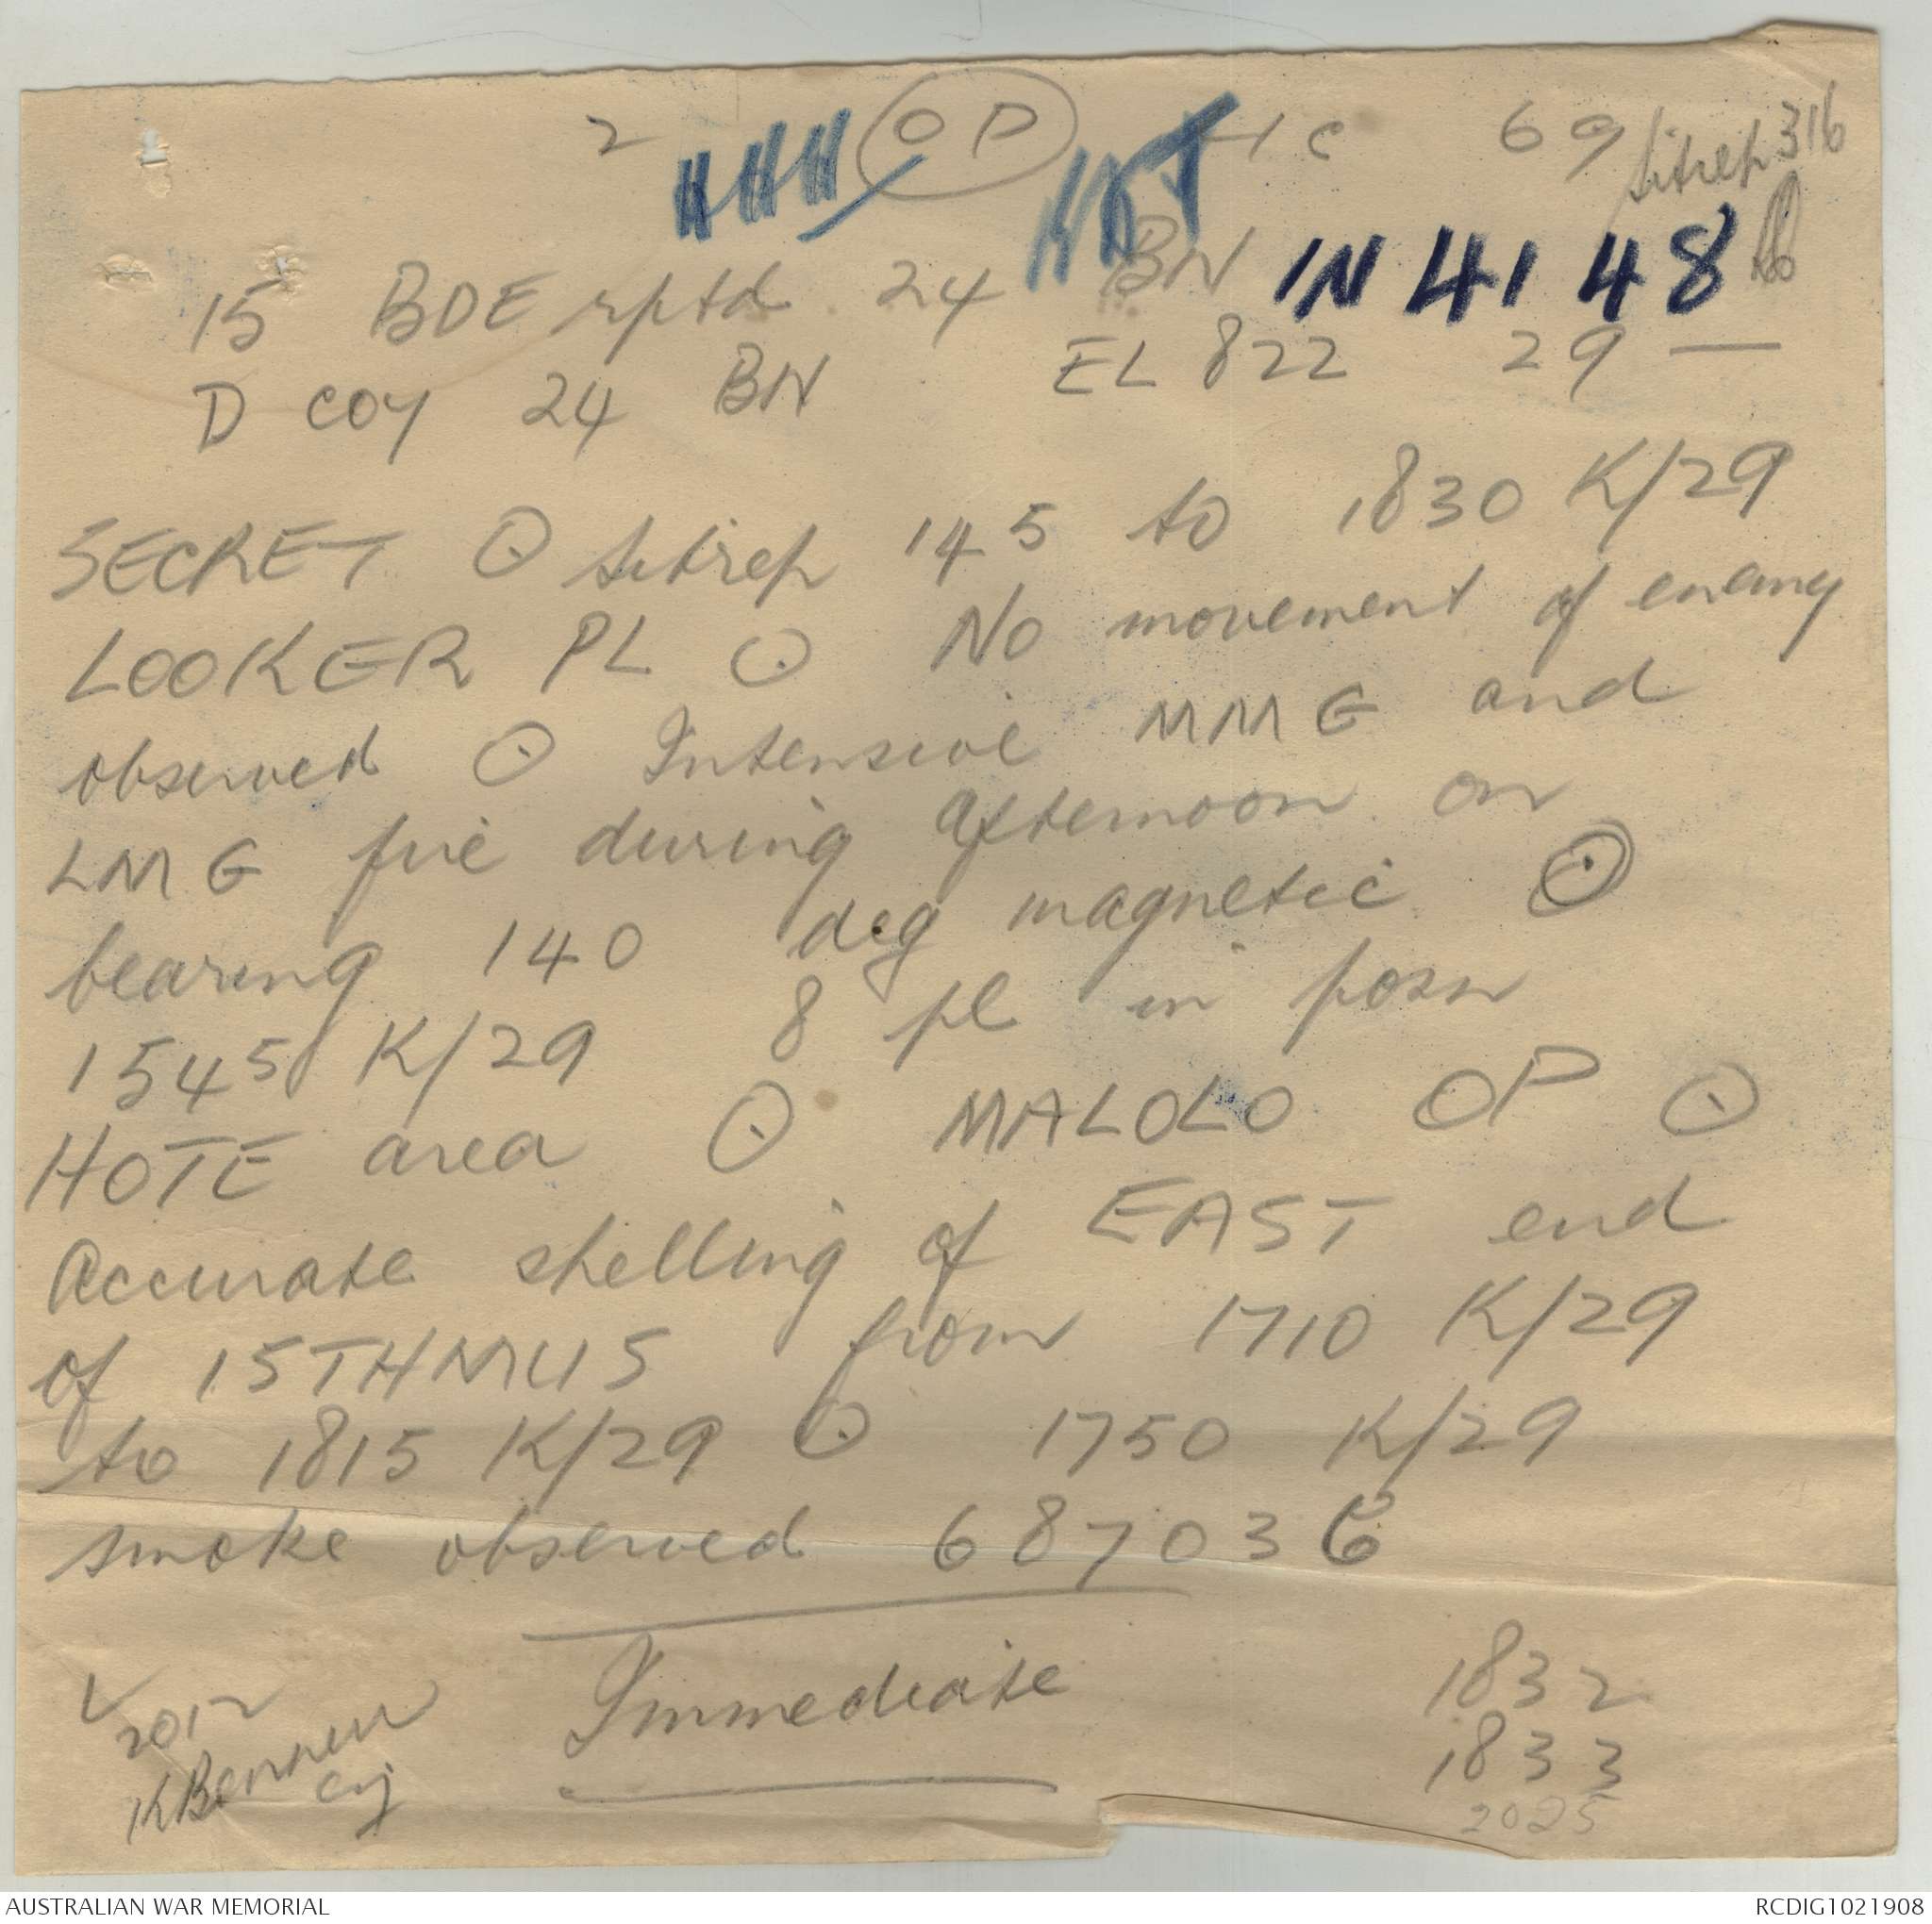 2 OP HC 69 Sitrep 316
IN 4148
15 BDE rptd 24 BN
D COY 24 BN EL 822 29 —
SECRET ⊙ Sitrep 145 to 1830 K/29
LOOKER PL ⊙ No movement of enemy
observed ⊙ Intensive MMG and
LMG fire during afternoon on
bearing 140 deg magnetic ⊙
1545 K/29 8 pl in posn
HOTE area ⊙ MALOLO OP ⊙
Accurate shelling of EAST end
of ISTHMUS from 1710 K/29
to 1815 K/29 ⊙ 1750 K/29
smoke observed 687036
Immediate
1832
1833
2025
2012
AUSTRALIAN WAR MEMORIAL
RCDIG1021908